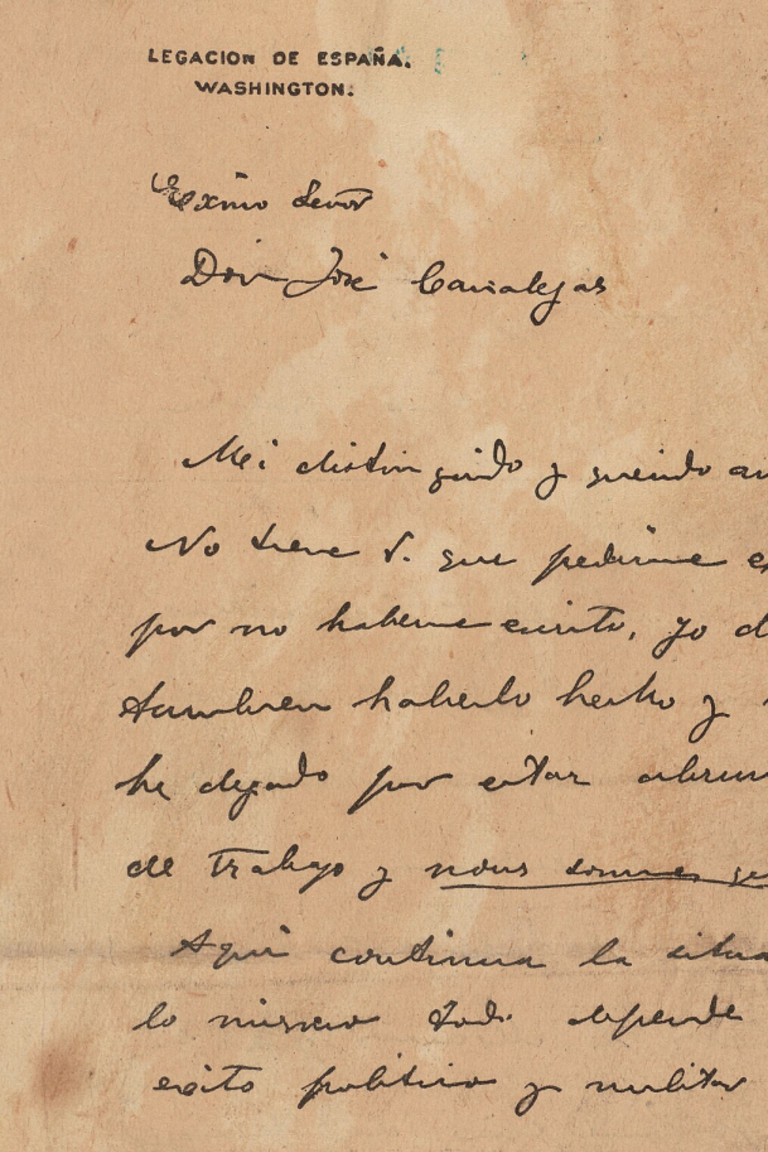 LEGACION DE ESPAÑA.
WASHINGTON.
Exmo Señor
Don José Canalejas
Mi distinguido y querido
No tiene V. que pedirme
por no haberme escrito, yo
tambien haberlo hecho y
he dejado por estar
de trabajo y nous sommes
Aqui continua la
lo mismo todo depende
exito politico y militar